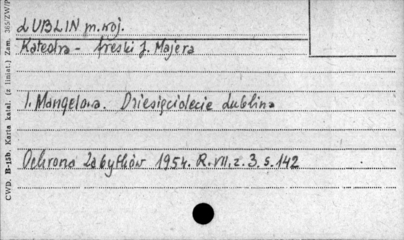 LUBLIN m. woj.
Katedra - freski J. Majera
I. Mangelowa. Dziesięciolecie Lublina
Ochrona Zabytków 1954. R. VII, z. 3, s. 142
CWD. B-15b. Karta katal. (z liniat.) Zam.